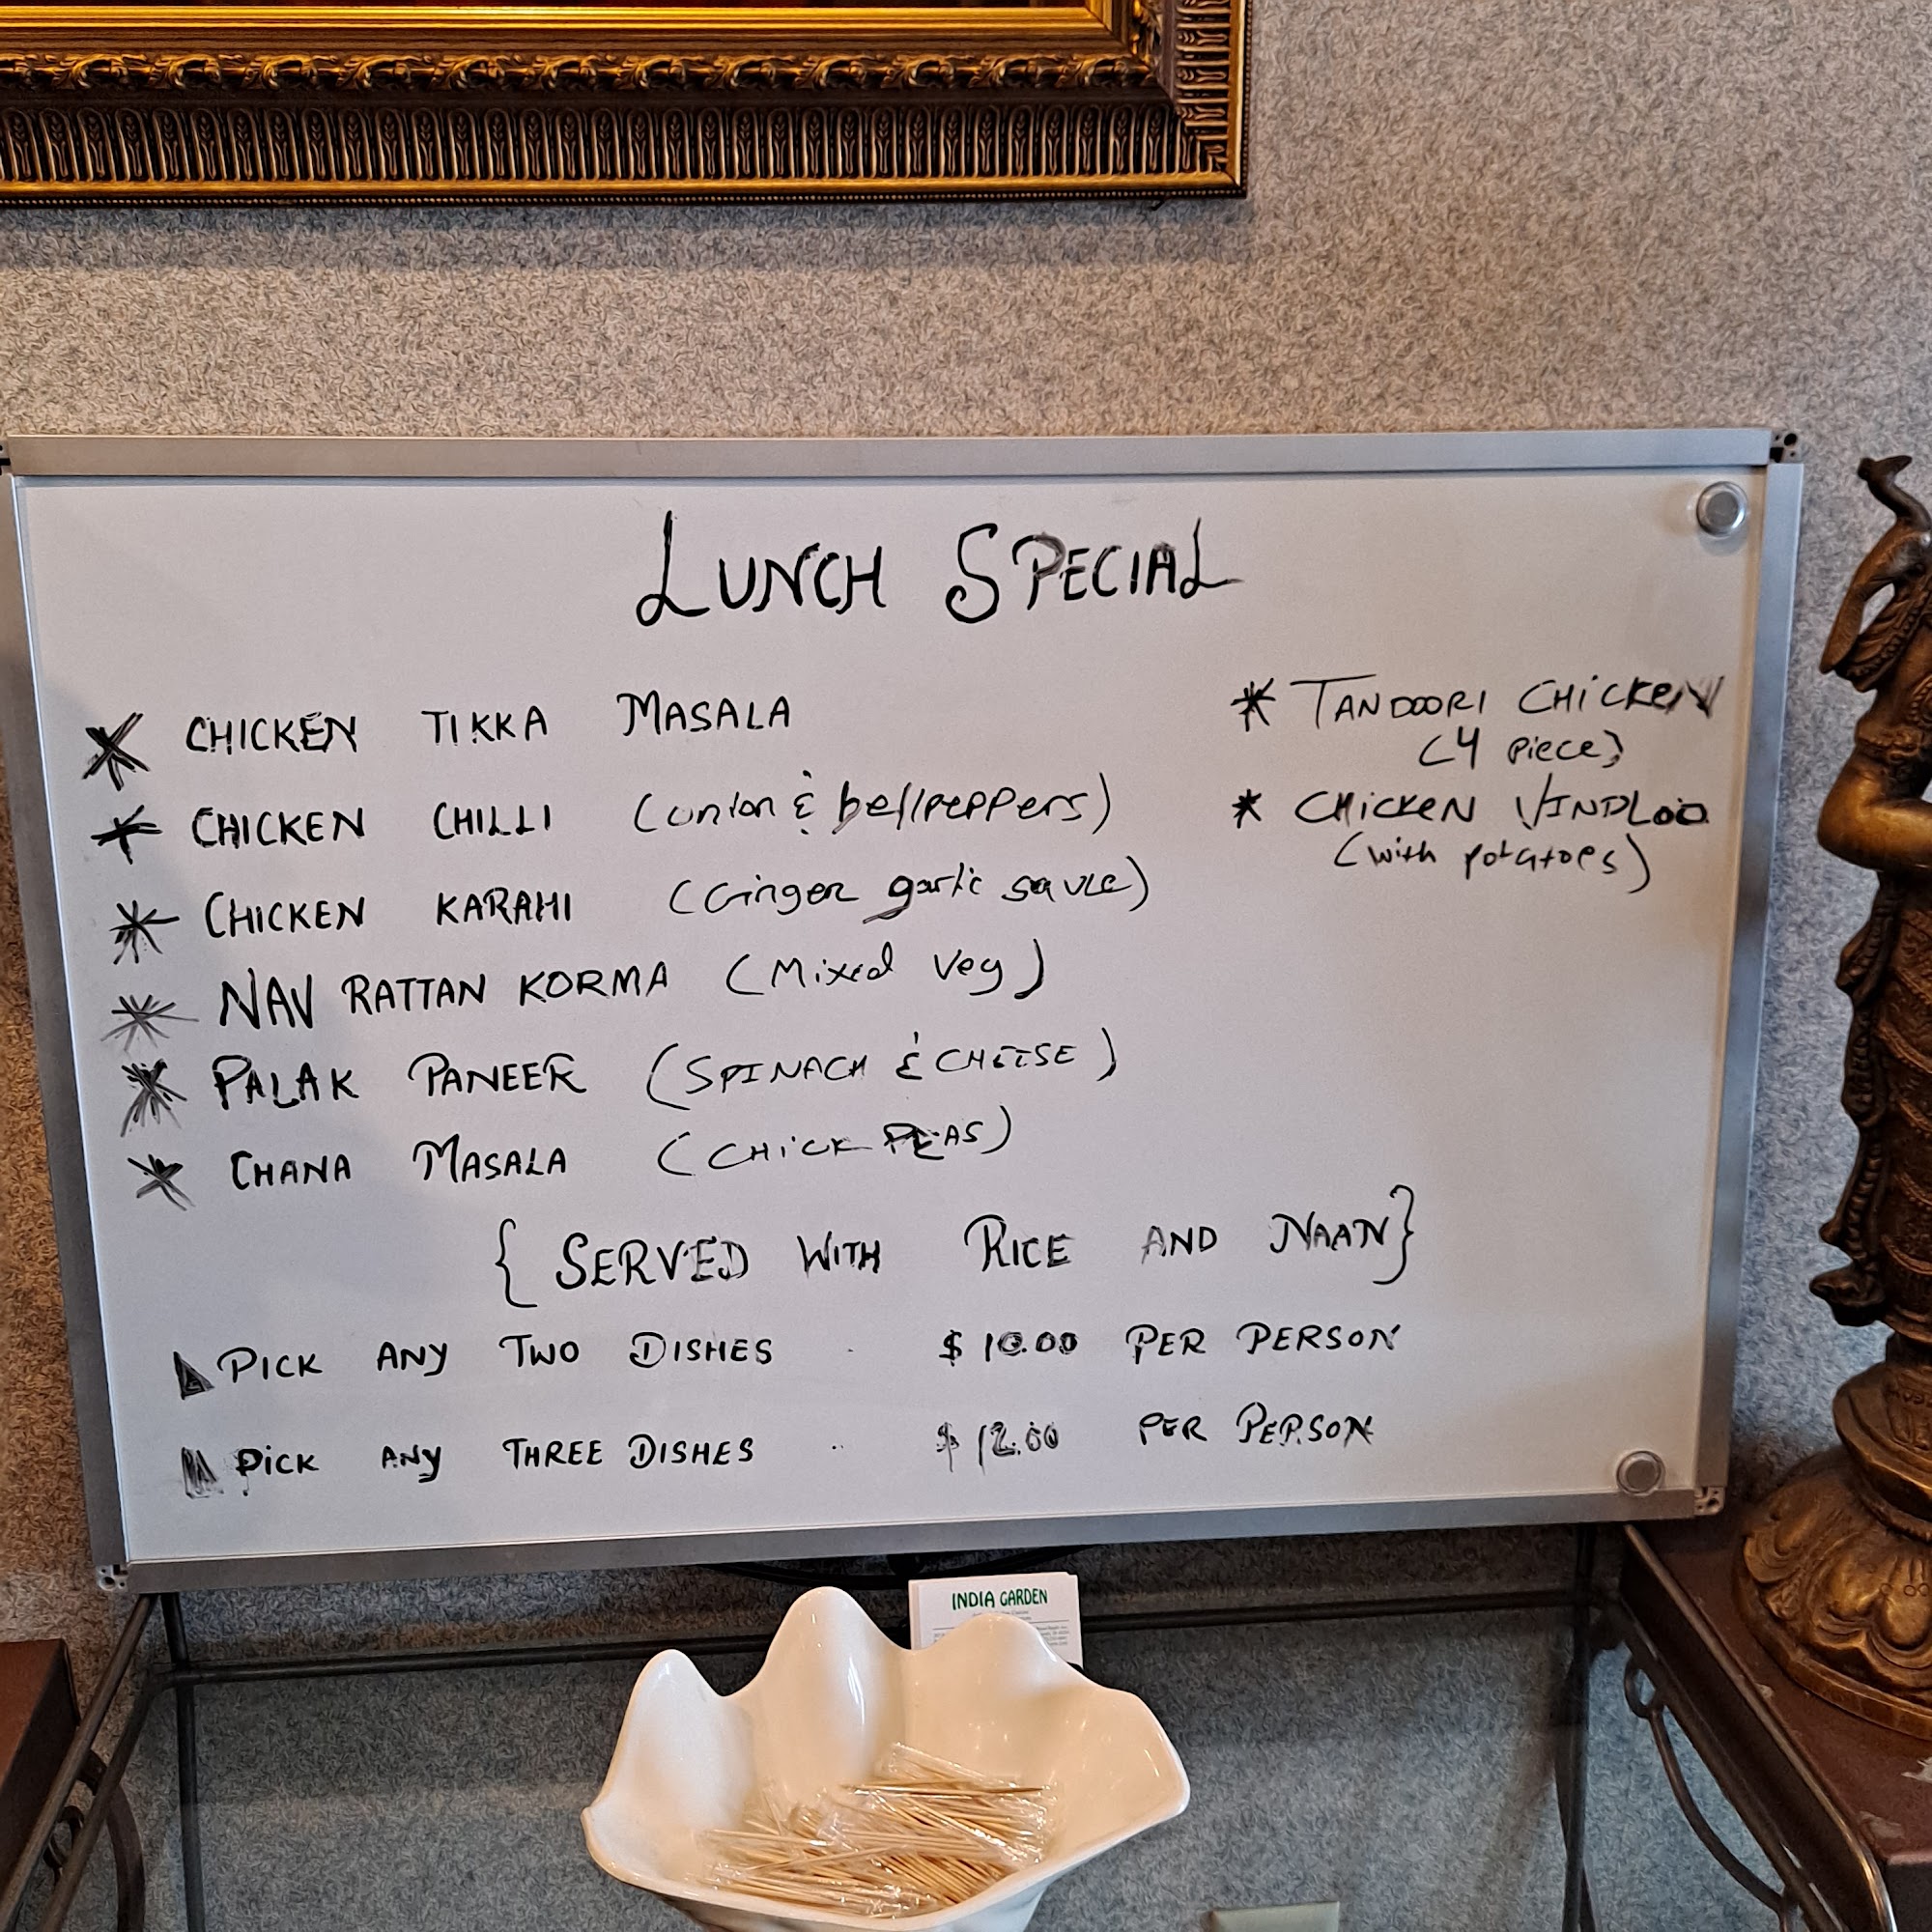 LUNCH SPECIAL
* CHICKEN TIKKA MASALA
* CHICKEN CHILLI (onion & bellpeppers)
* CHICKEN KARAHI (Ginger garlic sauce)
* NAV RATTAN KORMA (Mixed Veg)
* PALAK PANEER (SPINACH & CHEESE)
* CHANA MASALA (CHICK PEAS)
* TANDOORI CHICKEN
(4 piece)
* CHICKEN VINDLOO
(with potatoes)
{ SERVED WITH RICE AND NAAN}
PICK ANY TWO DISHES . $ 10.00 PER PERSON
PICK ANY THREE DISHES .. $ 12.00 PER PERSON
INDIA GARDEN